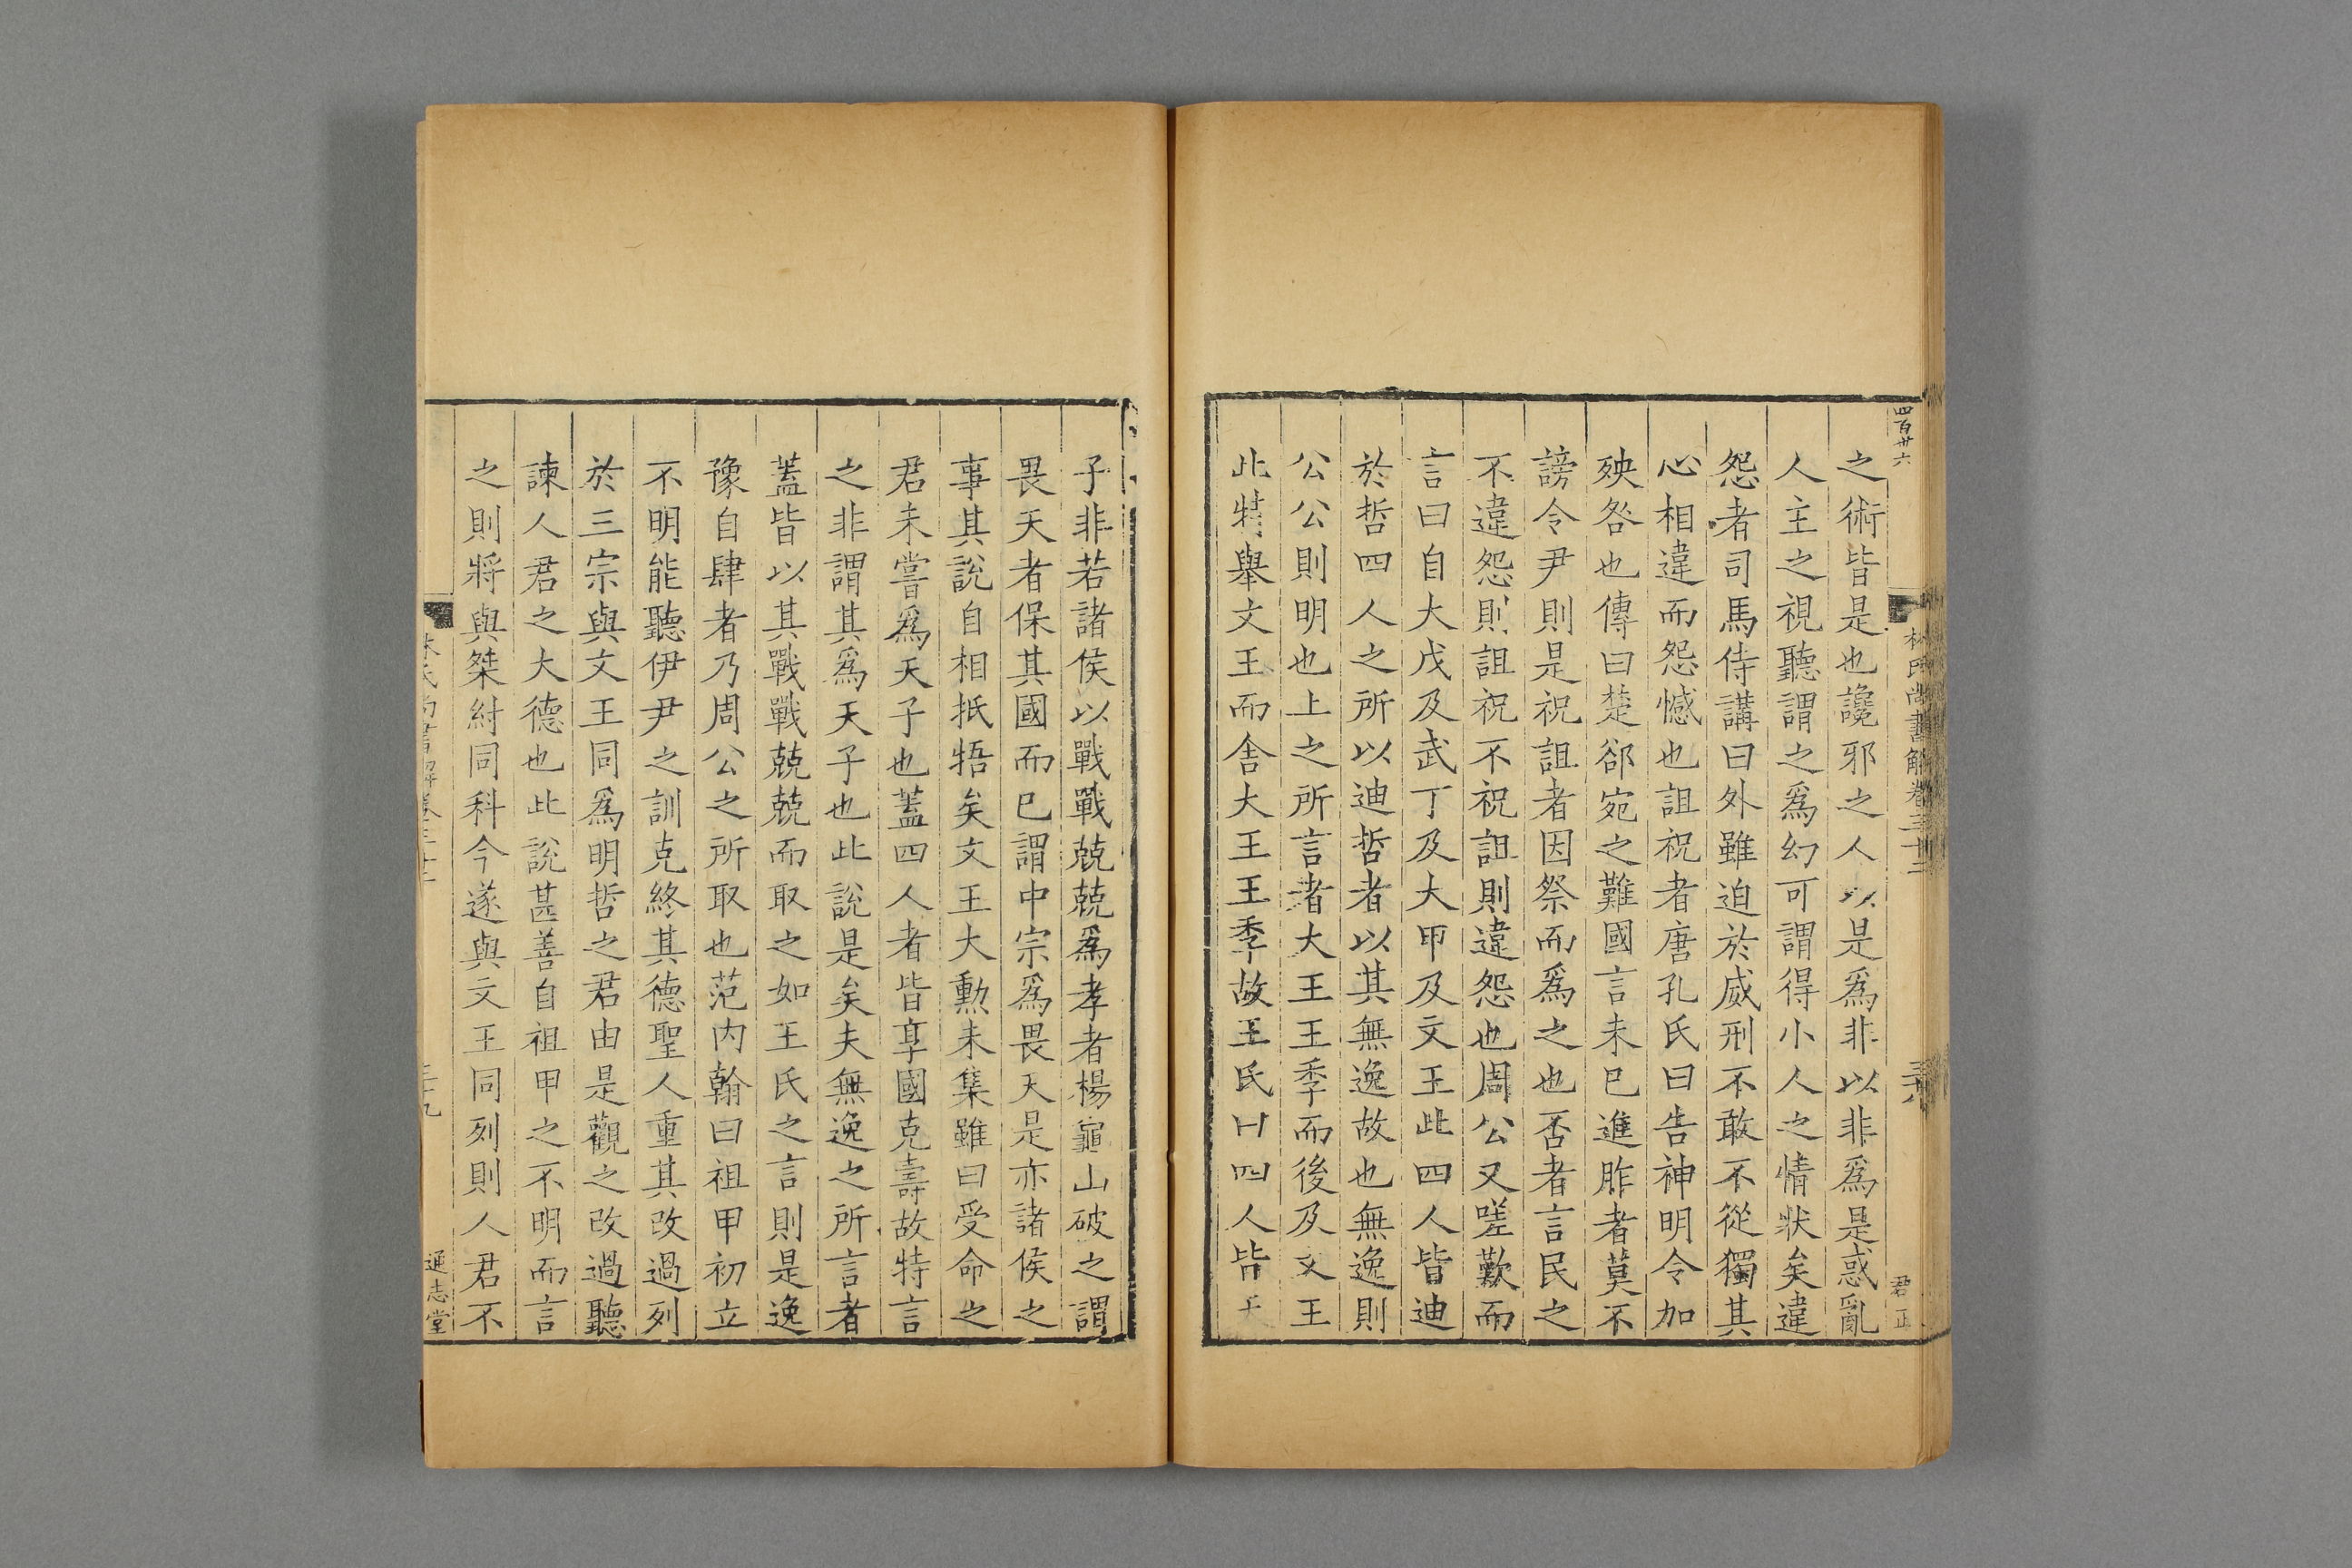 四百卅六
林氏尚書解卷三十二
君正
之術皆是也讒邪之人以是爲非以非爲是惑亂
人主之視聽謂之爲幻可謂得小人之情狀矣違
怨者司馬侍講曰外雖迫於威刑不敢不從獨其
心相違而怨憾也詛祝者唐孔氏曰告神明令加
殃咎也傳曰楚郤宛之難國言未已進胙者莫不
謗令尹則是祝詛者因祭而爲之也否者言民之
不違怨則詛祝不祝詛則違怨也周公又嗟歎而
言曰自大戊及武丁及大甲及文王此四人皆迪
於哲四人之所以迪哲者以其無逸故也無逸則
公公則明也上之所言者大王王季而後及文王
此特舉文王而舍大王王季故王氏曰四人皆天
子非若諸侯以戰戰兢兢爲孝者楊龜山破之謂
畏天者保其國而已謂中宗爲畏天是亦諸侯之
事其說自相抵牾矣文王大勲未集雖曰受命之
君未嘗爲天子也蓋四人者皆享國克壽故特言
之非謂其爲天子也此說是矣夫無逸之所言者
蓋皆以其戰戰兢兢而取之如王氏之言則是逸
豫自肆者乃周公之所取也范内翰曰祖甲初立
不明能聽伊尹之訓克終其德聖人重其改過列
於三宗與文王同爲明哲之君由是觀之改過聽
諫人君之大德也此說甚善自祖甲之不明而言
之則將與桀紂同科今遂與文王同列則人君不
林氏尚書解卷三十二
三十九
通志堂